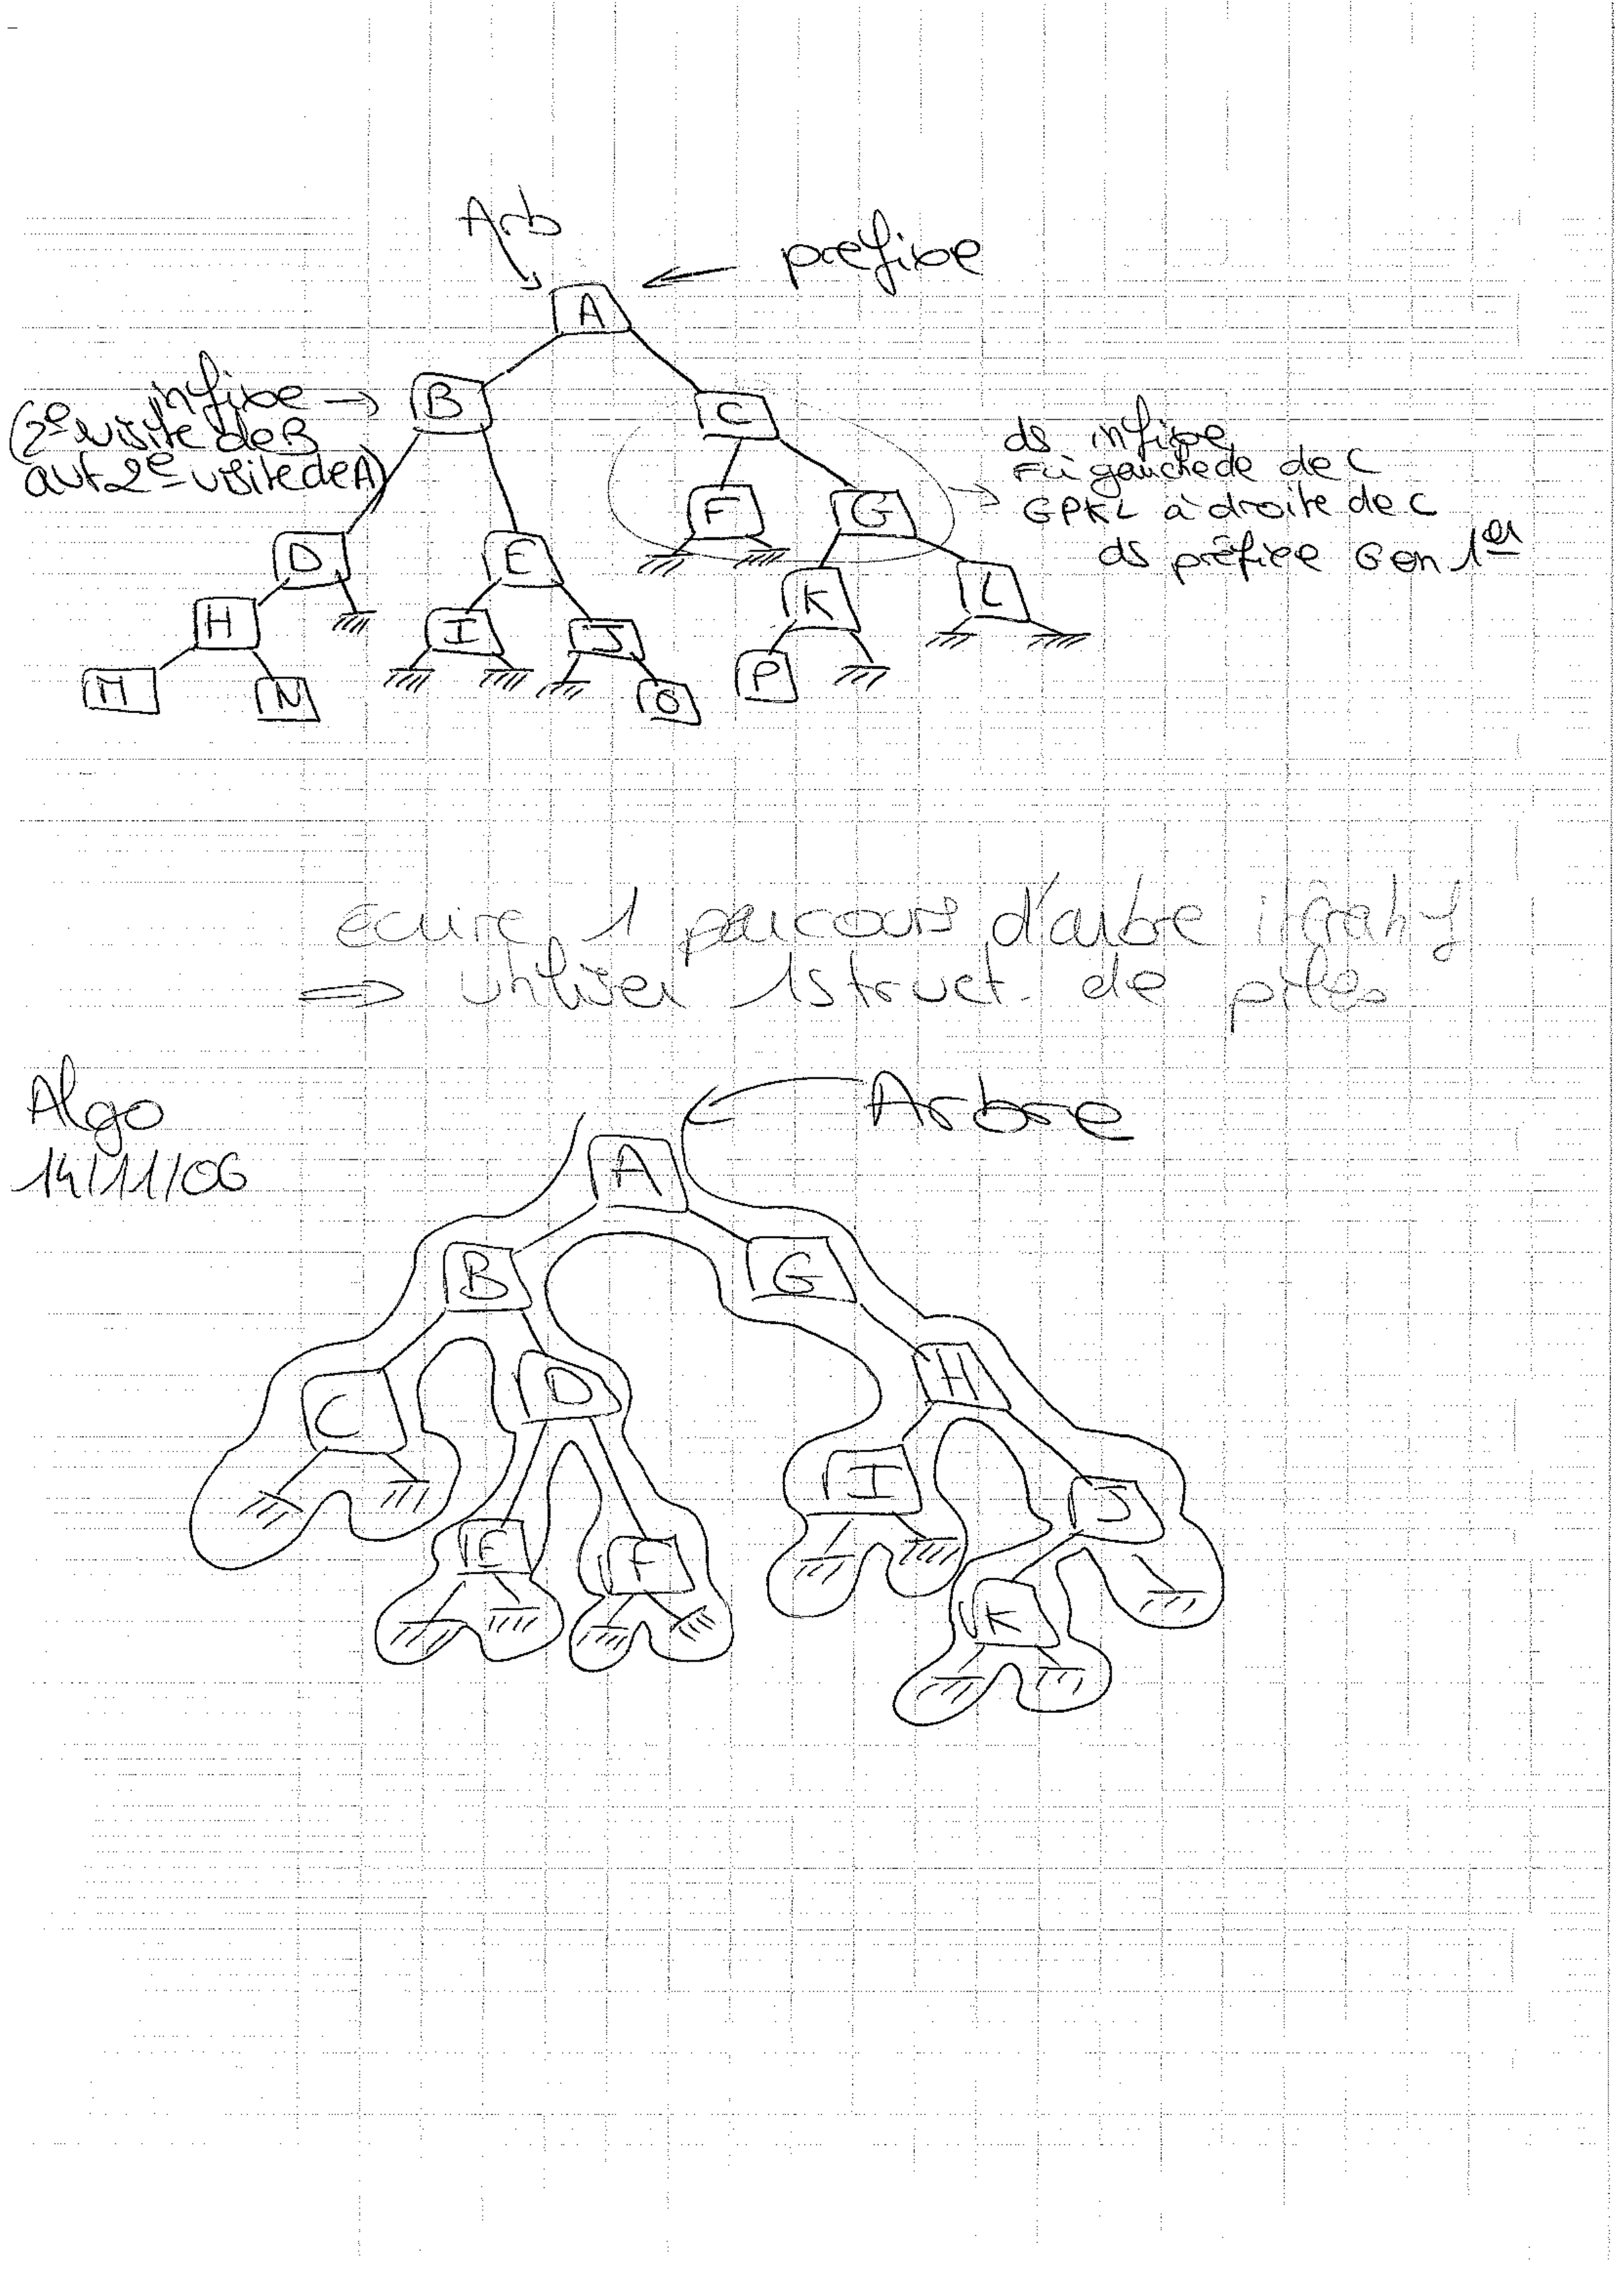 Arb
préfixe
A
infixe
B
C
(2e visite de B
avt 2e visite de A)
ds infixe
F à gauche de C
GPKL à droite de C
ds préfixe G en 1er
F
G
D
E
K
L
H
I
J
M
N
O
P
écrire 1 parcours d'arbre itératif
⇒ utiliser 1 struct. de piles
Algo
14/11/06
Arbre
A
B
G
C
D
H
I
J
E
F
K